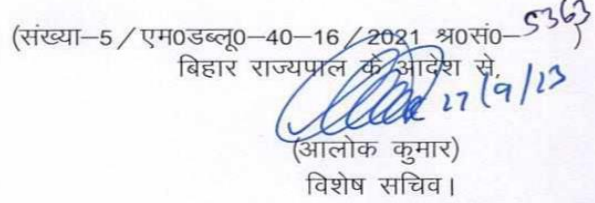 (संख्या–5/एम0डब्लू0–40–16/2021 श्र0सं0–5363)
बिहार राज्यपाल के आदेश से,
27/9/23
(आलोक कुमार)
विशेष सचिव।